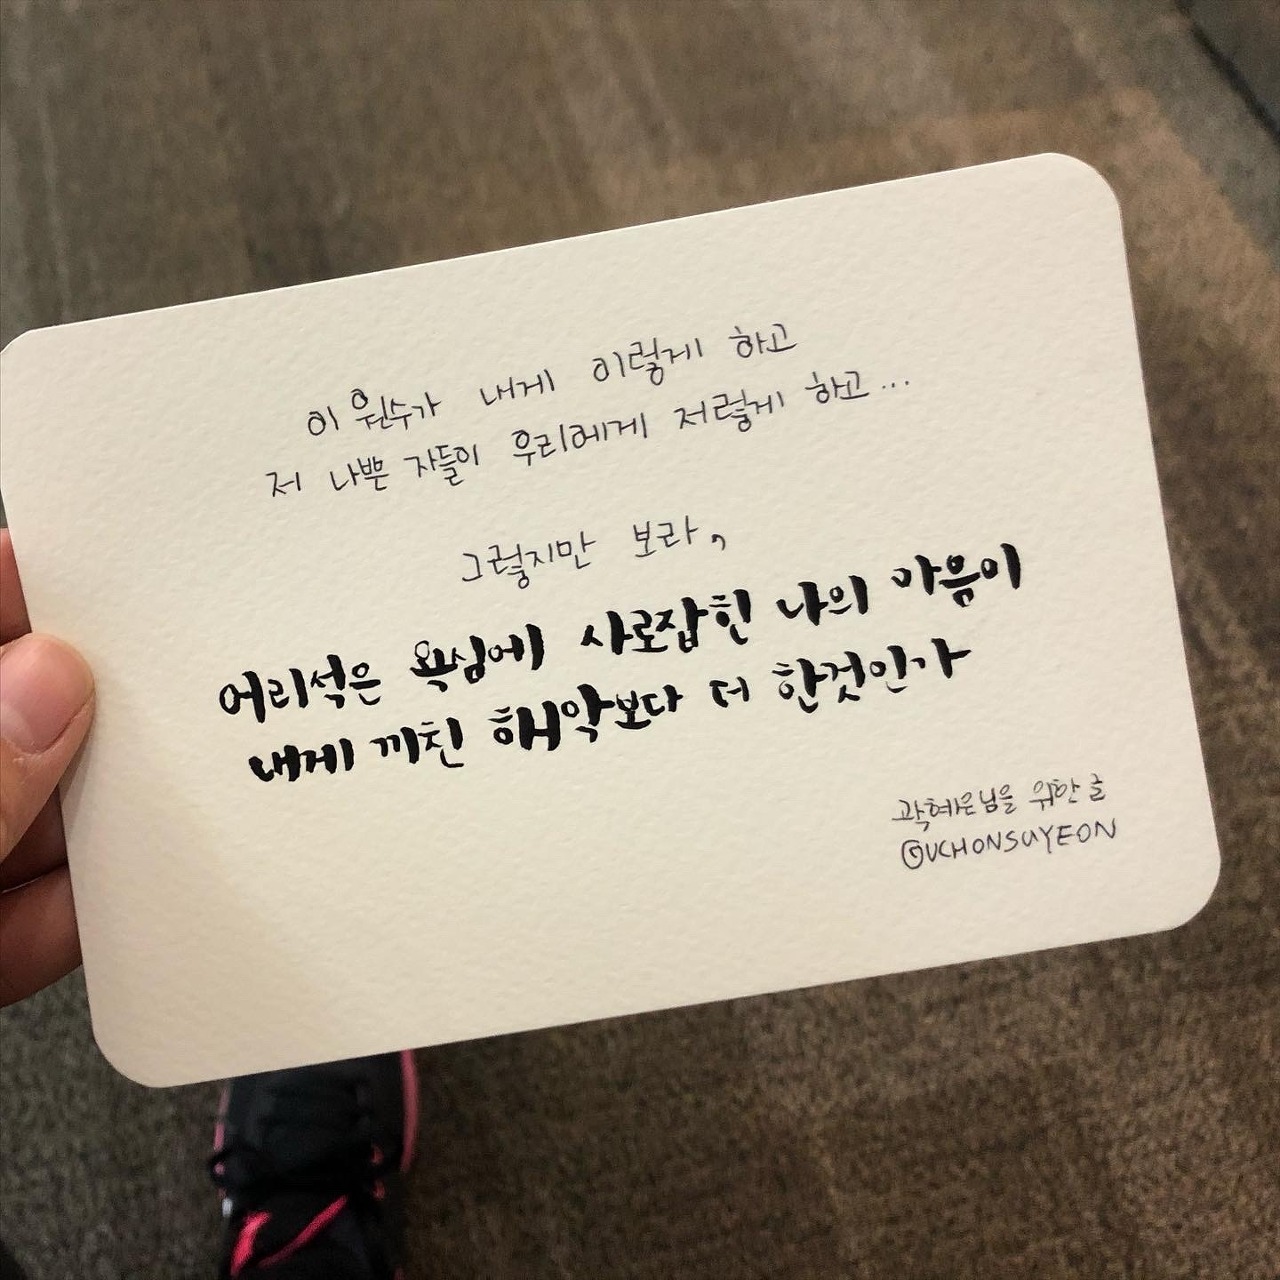 이 원수가 내게 이렇게 하고
저 나쁜 자들이 우리에게 저렇게 하고...
그렇지만 보라,
어리석은 욕심에 사로잡힌 나의 마음이
내게 끼친 해악보다 더 한것인가
곽혜은님을 위한 글
@UCHONSUYEON